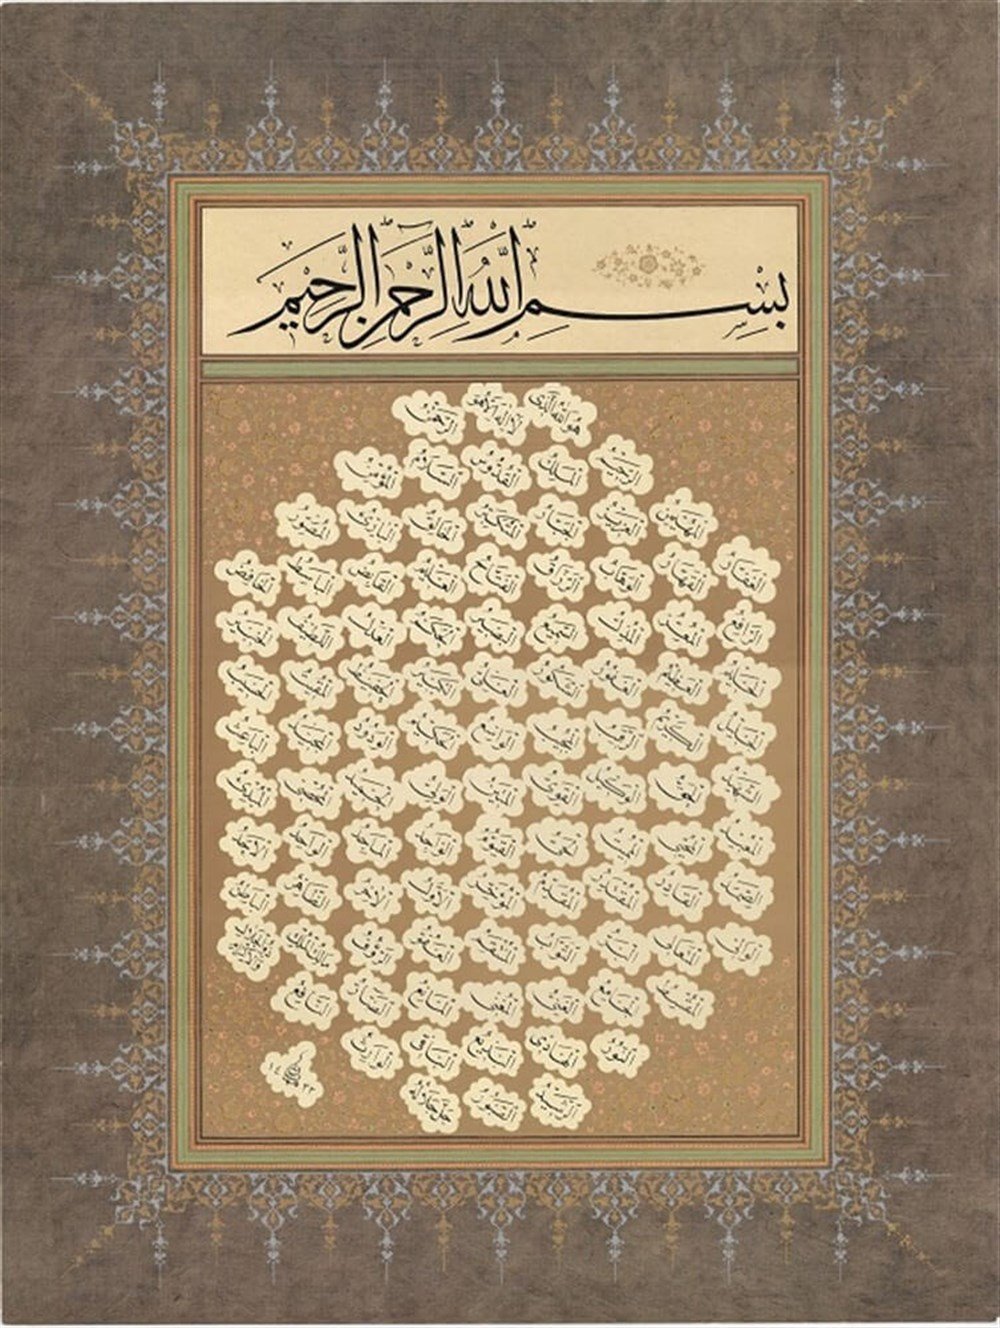 بِسْمِ اللّٰهِ الرَّحْمٰنِ الرَّحِيمِ
هو الله الذي لا اله الا هو الرحمن
الرحيم الملك القدوس السلام المؤمن
المهيمن العزيز الجبار المتكبر الخالق البارئ المصور
الغفار القهار الوهاب الرزاق الفتاح العليم القابض الباسط الخافض
الرافع المعز المذل السميع البصير الحكم العدل اللطيف الخبير
الحليم العظيم الغفور الشكور العلي الكبير الحفيظ المقيت الحسيب
الجليل الكريم الرقيب المجيب الواسع الحكيم الودود المجيد الباعث
الشهيد الحق الوكيل القوي المتين الولي الحميد المحصي المبدئ
المعيد المحيي المميت الحي القيوم الواجد الماجد الواحد الاحد
الصمد القادر المقتدر المقدم المؤخر الاول الآخر الظاهر الباطن
الوالي المتعال البر التواب المنتقم العفو الرؤف مالك الملك ذو الجلال والاكرام
المقسط الجامع الغني المغني المانع الضار النافع
النور الهادي البديع الباقي الوارث
الرشيد الصبور جل جلاله